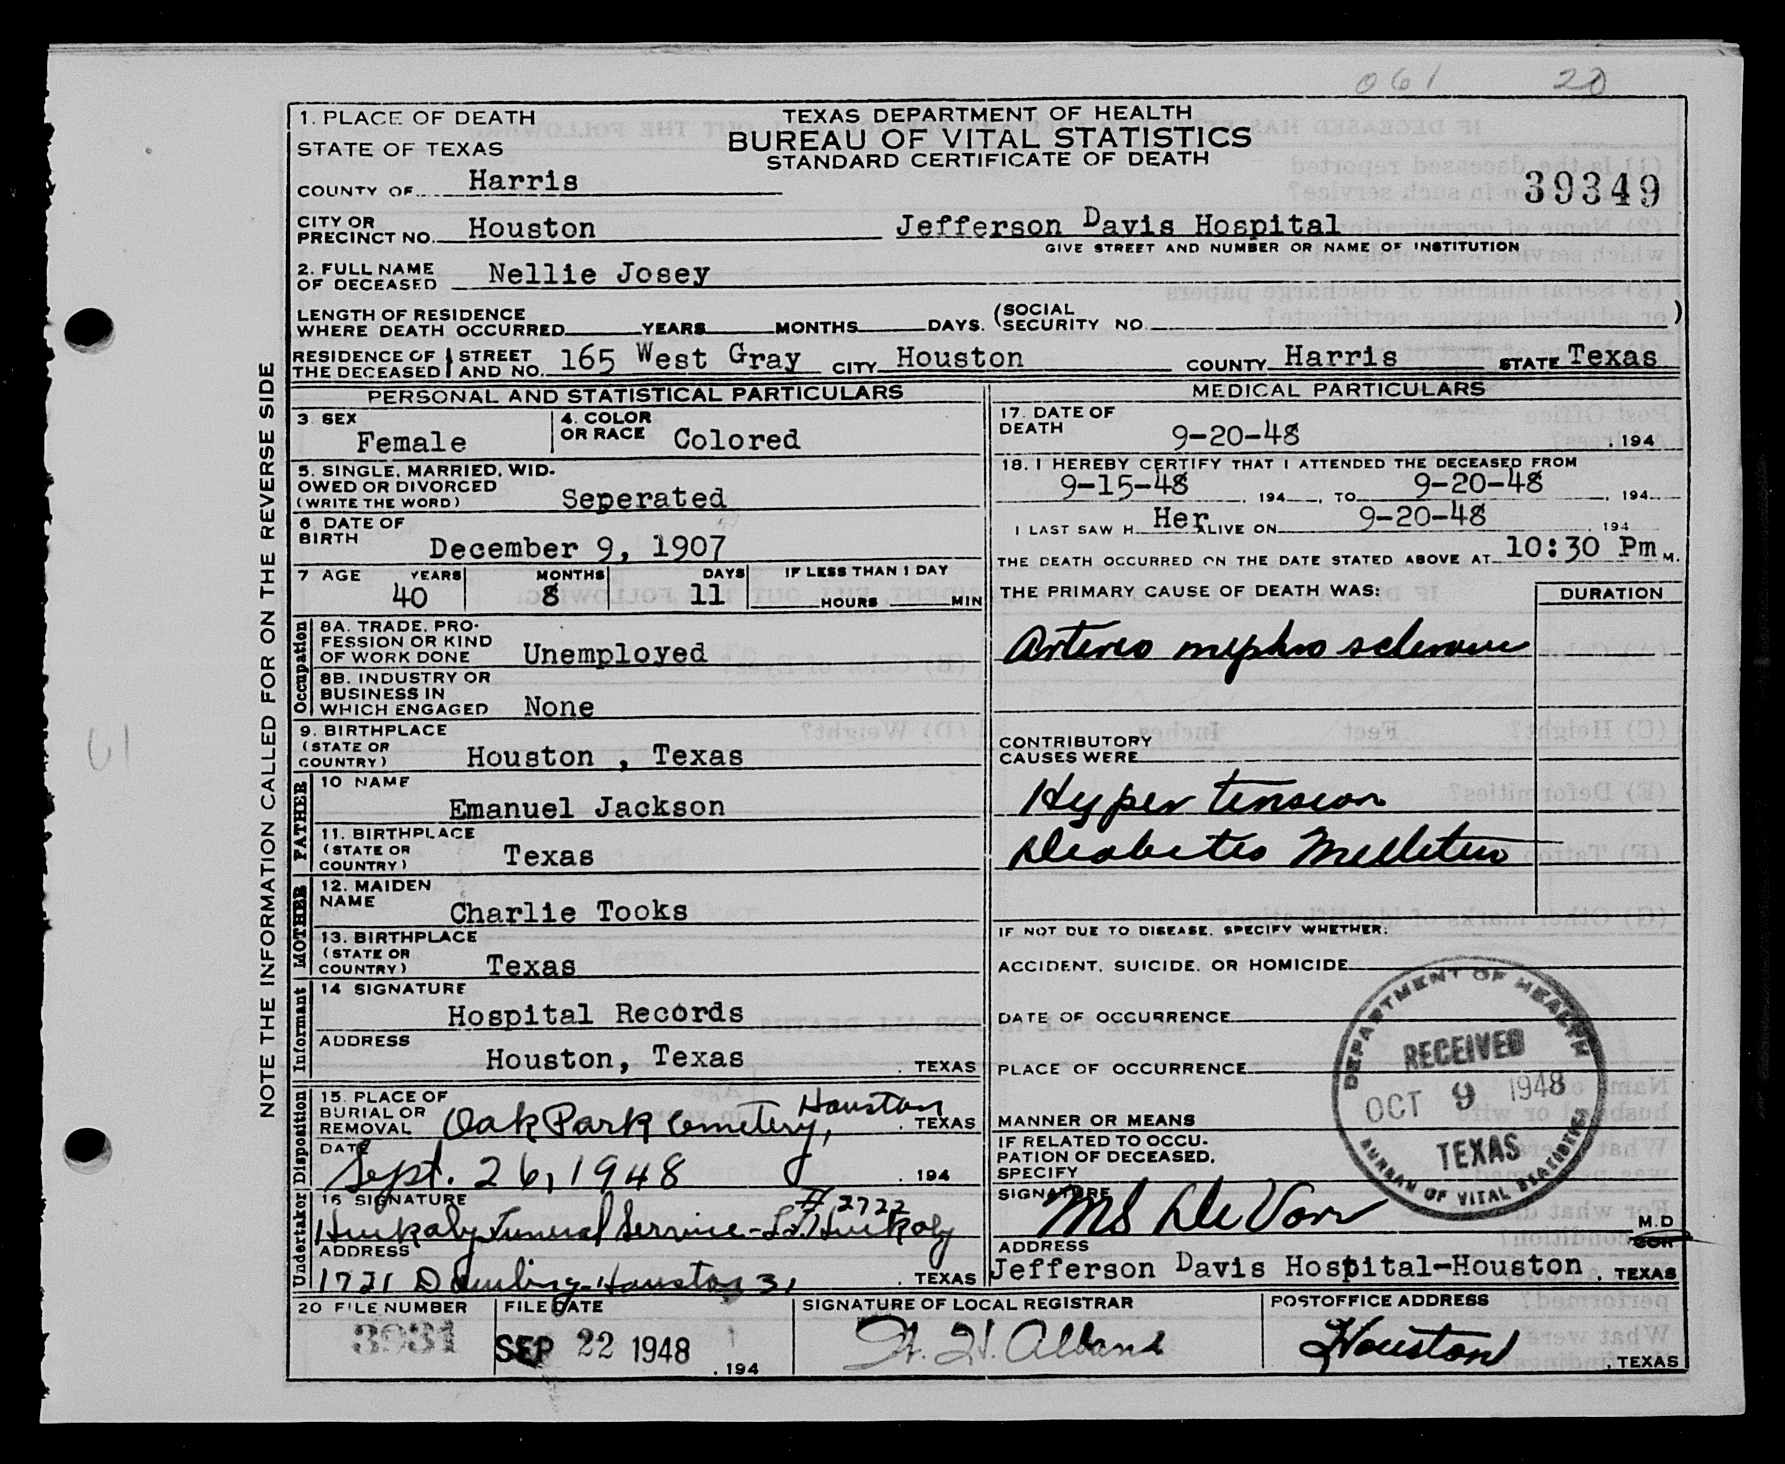 061 20
1. PLACE OF DEATH
STATE OF TEXAS
TEXAS DEPARTMENT OF HEALTH
BUREAU OF VITAL STATISTICS
STANDARD CERTIFICATE OF DEATH
COUNTY OF Harris
39349
CITY OR
PRECINCT NO. Houston Jefferson Davis Hospital
GIVE STREET AND NUMBER OR NAME OF INSTITUTION
2. FULL NAME
OF DECEASED Nellie Josey
LENGTH OF RESIDENCE
WHERE DEATH OCCURRED YEARS MONTHS DAYS. (SOCIAL
SECURITY NO. )
RESIDENCE OF THE DECEASED STREET AND NO. 165 West Gray CITY Houston COUNTY Harris STATE Texas
PERSONAL AND STATISTICAL PARTICULARS
3 SEX Female
4. COLOR
OR RACE Colored
5. SINGLE, MARRIED, WID-
OWED OR DIVORCED
(WRITE THE WORD) Seperated
6 DATE OF
BIRTH December 9, 1907
7 AGE YEARS MONTHS DAYS IF LESS THAN 1 DAY
40 8 11 HOURS MIN
Occupation
8A. TRADE, PRO-
FESSION OR KIND
OF WORK DONE Unemployed
8B. INDUSTRY OR
BUSINESS IN
WHICH ENGAGED None
9. BIRTHPLACE
(STATE OR
COUNTRY) Houston , Texas
FATHER
10 NAME
Emanuel Jackson
11. BIRTHPLACE
(STATE OR
COUNTRY) Texas
MOTHER
12. MAIDEN
NAME Charlie Tooks
13. BIRTHPLACE
(STATE OR
COUNTRY) Texas
Informant
14 SIGNATURE
Hospital Records
ADDRESS
Houston, Texas . TEXAS
Disposition
15. PLACE OF
BURIAL OR
REMOVAL Oak Park Cemetery, Houston . TEXAS
DATE
Sept. 26, 1948 . 194
Undertaker
16 SIGNATURE # 2722
Huckaby Funeral Service - Huckaby
ADDRESS
1721 Houston 3, . TEXAS
MEDICAL PARTICULARS
17. DATE OF
DEATH 9-20-48 . 194
18. I HEREBY CERTIFY THAT I ATTENDED THE DECEASED FROM
9-15-48 . 194 , TO 9-20-48 , 194
I LAST SAW H Her ALIVE ON 9-20-48 . 194
THE DEATH OCCURRED ON THE DATE STATED ABOVE AT 10:30 Pm M.
THE PRIMARY CAUSE OF DEATH WAS: DURATION
Arterio nephro sclerosis
CONTRIBUTORY
CAUSES WERE
Hyper tension
Diabetes Mellitus
IF NOT DUE TO DISEASE, SPECIFY WHETHER:
ACCIDENT, SUICIDE, OR HOMICIDE
DATE OF OCCURRENCE
PLACE OF OCCURRENCE
MANNER OR MEANS
IF RELATED TO OCCU-
PATION OF DECEASED,
SPECIFY
DEPARTMENT OF HEALTH
RECEIVED
OCT 9 1948
TEXAS
BUREAU OF VITAL STATISTICS
SIGNATURE
MS DeVon M.D
ADDRESS
Jefferson Davis Hospital-Houston . TEXAS
20 FILE NUMBER FILE DATE SIGNATURE OF LOCAL REGISTRAR POSTOFFICE ADDRESS
3931 SEP 22 1948 . 194 Houston . TEXAS
NOTE THE INFORMATION CALLED FOR ON THE REVERSE SIDE
61